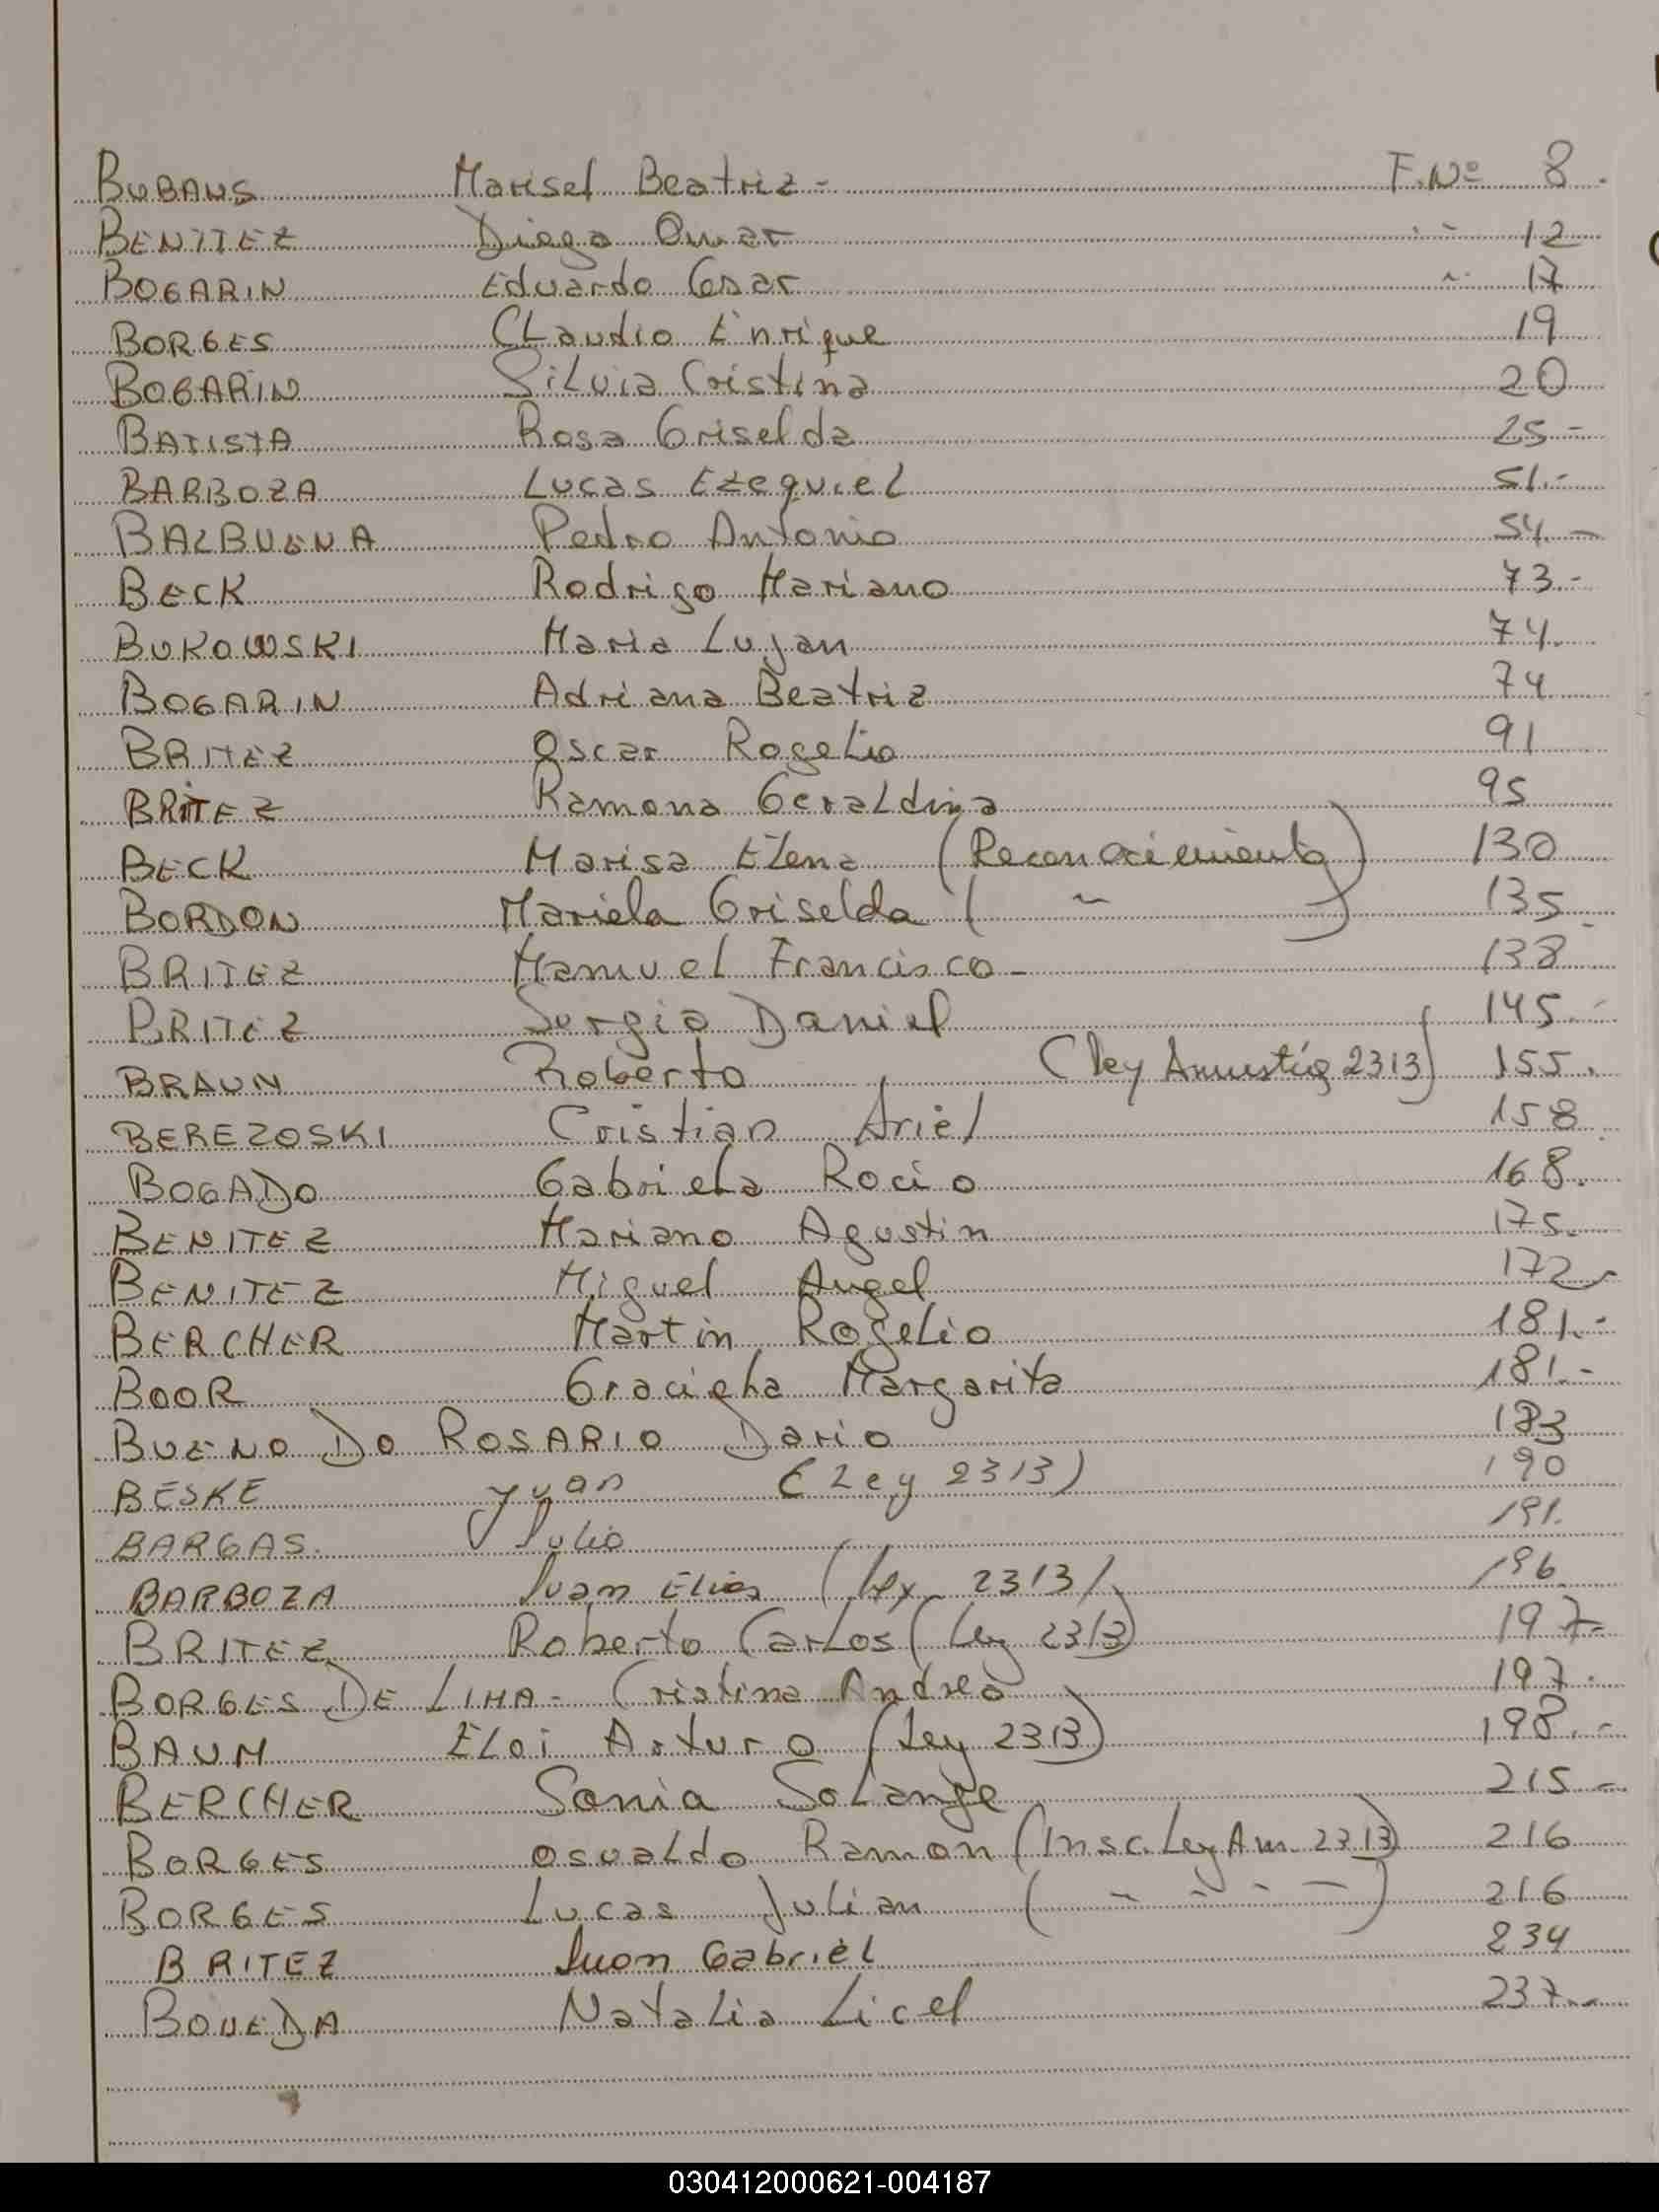 BUBANS Marisel Beatriz - F.Nº 8.
BENITEZ Diego Omar " 12
BOGARIN Eduardo Cesar " 17
BORGES CLaudio Enrique 19
BOGARIN SiLvia Cristina 20
BATISTA Rosa Griselda 25 -
BARBOZA Lucas Ezequiel 51.-
BALBUENA Pedro Antonio 54.-
BECK Rodrigo Mariano 73.-
BUKOWSKI Maria Lujan 74.
BOGARIN Adriana Beatriz 74
BRITEZ Oscar RogeLio 91
BRITEZ Ramona GeraLdina 95
BECK Marisa ELena (Reconocimiento) 130
BORDON Mariela Griselda ( " ) 135
BRITEZ Manuel Francisco - 138
BRITEZ Sergio Daniel 145.-
BRAUN Roberto (Ley Amnistía 2313) 155.
BEREZOSKI Cristian Ariel 158
BOGADO GabrieLa Rocio 168.
BENITEZ Mariano Agustin 175.
BENITEZ Miguel Angel 172
BERCHER Martin RogeLio 181.-
BOOR GracieLa Margarita 181.-
BUENO DO ROSARIO Dario 183
BESKE Juan (Ley 2313) 190
BARGAS. Julio 191.
BARBOZA Juan Elias (Ley 2313) 196
BRITEZ Roberto CarLos (Ley 2313) 197-
BORGES DE LIMA - Cristina Andrea 197.
BAUM ELoi Arturo (Ley 2313) 198.-
BERCHER Sonia SoLange 215 -
BORGES OsvaLdo Ramon (Insc. Ley Am. 2313) 216
BORGES Lucas JuLian ( " " " " ) 216
BRITEZ Juan GabrieL 234
BOVEDA NataLia Licel 237.-
030412000621-004187